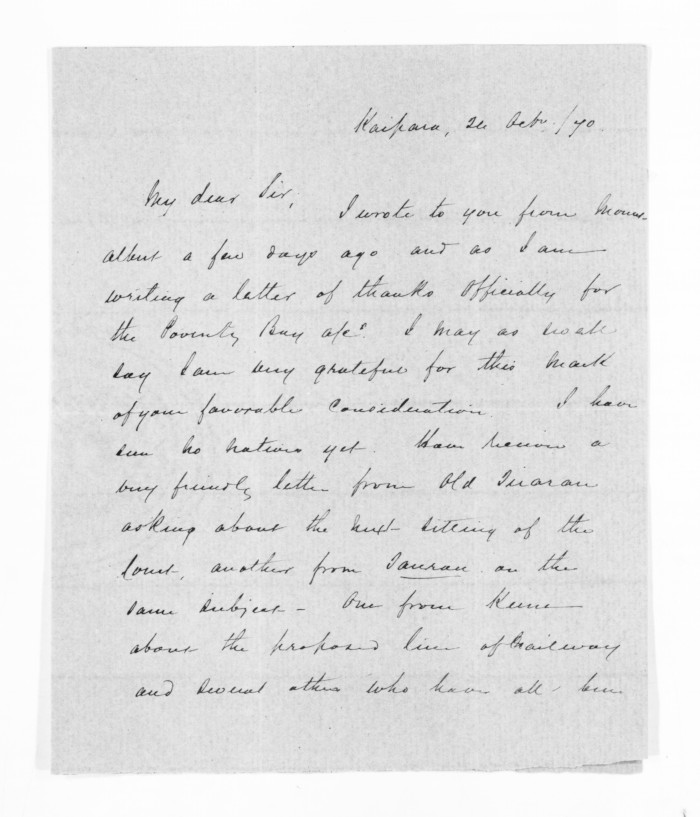 Kaipara, 24 Octr. /70.
My dear Sir,
I wrote to you from Mount
albert a few days ago and as I am
writing a letter of thanks Officially for
the Poverty Bay a/c. I may as well
say I am very grateful for this mark
of your favorable consideration. I have
seen no natives yet. Have received a
very friendly letter from Old
asking about the next sitting of the
Court, another from on the
same subject - One from Keene
about the proposed line of Railway
and several others who have all been